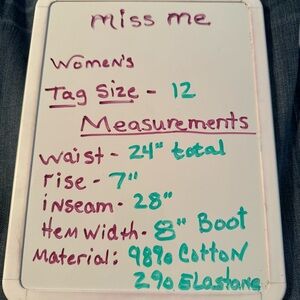 miss me
Women's
Tag Size - 12
Measurements
waist - 24" total
rise - 7"
inseam - 28"
Hem Width - 8" Boot
Material: 98% Cotton
2% Elastane